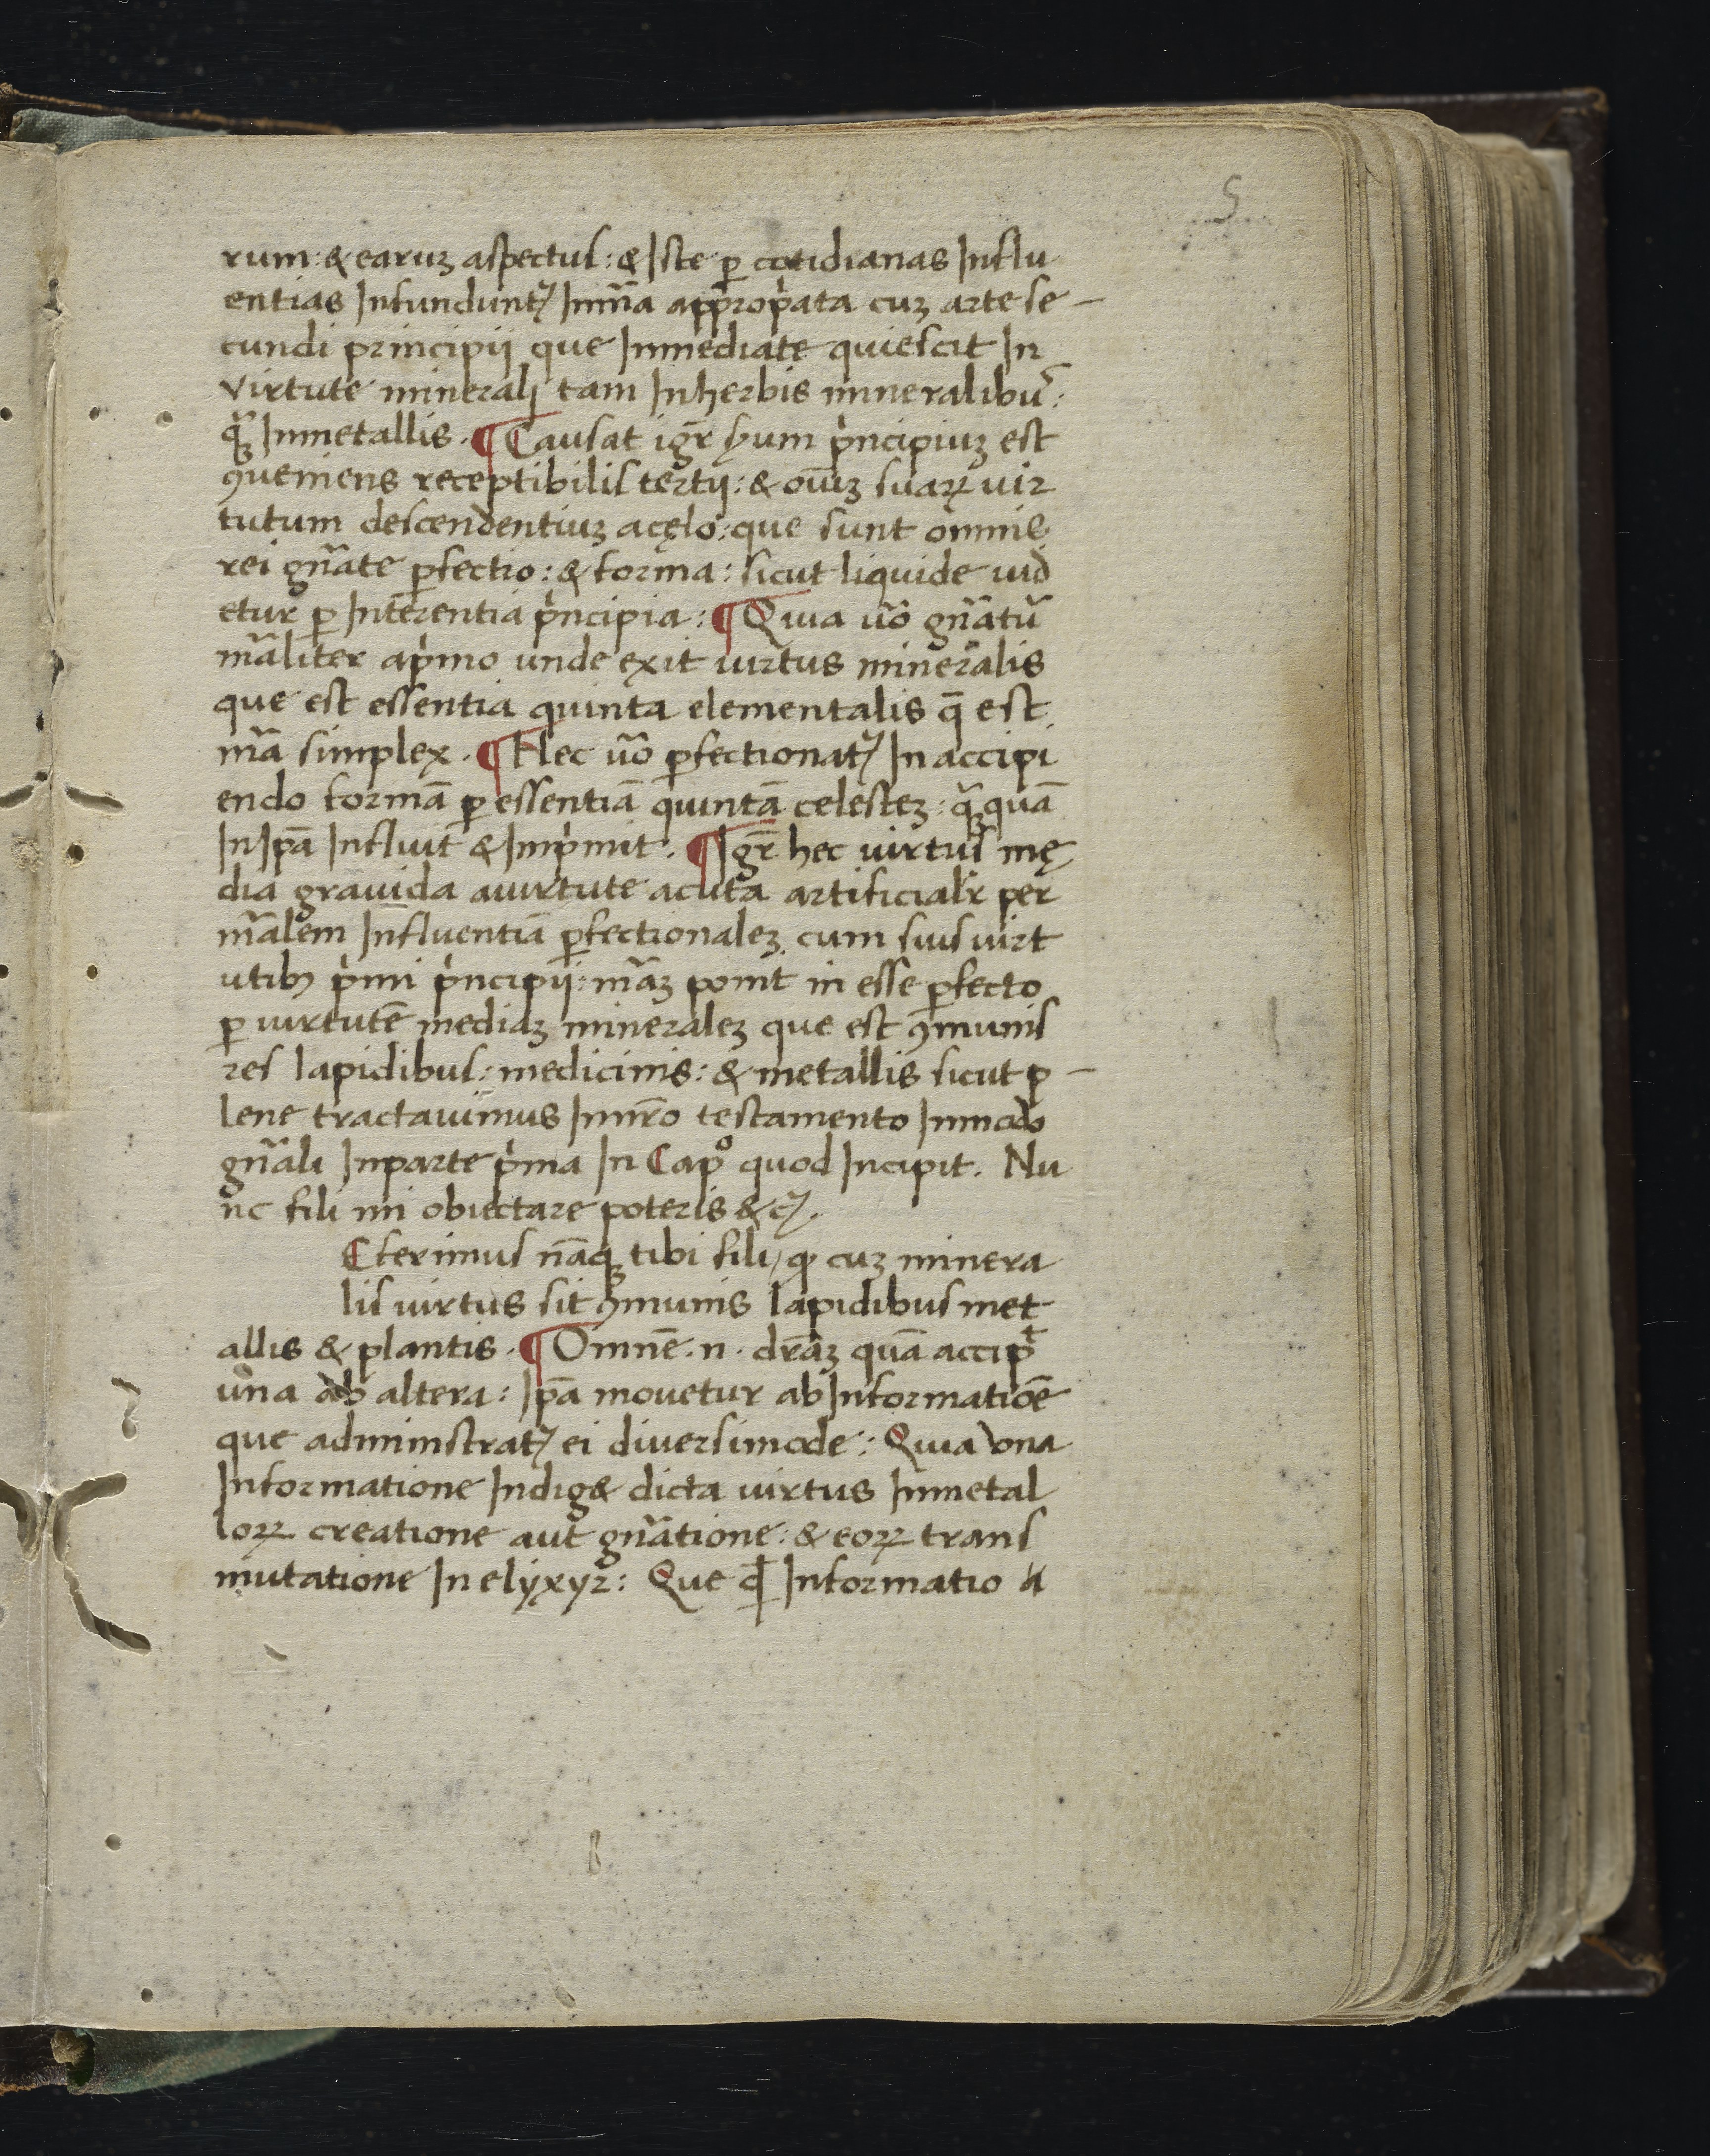 5
rum: & earuꝫ aspectus: & Iste ꝑ cotidianas Influ
entias Infunduntᷣ Inm̄a appropⁱata cuꝫ arte se-
cundi principij que Inmediate quiescit In
virtute minerali tam In herbis mineralibuˢ:
qᷓꝫ Inmetallis. ¶ Causat igr̄ sum pⁱncipiuꝫ est
ꝯueniens receptibilis tertij: & om̄iꝫ suaꝝ uir
tutum descendentiuꝫ acęlo: que sunt omnis
rei gn̄ate ꝑfectio: & forma: sicut liquide uid
etur ꝑ Inferentia pⁱncipia: ¶ Quia uō gn̄atū
māliter apⁱmo unde exit uirtus mineralis
que est essentia quinta elementalis q̄ est
mā simplex. ¶ Hec uō ꝑfectionatᷣ In accipi
endo formā ꝑ essentiā quintā celesteꝫ: qᷓꝫquā
In Ipā Influit & Impⁱmit. ¶ Igr̄ hec uirtus mę
dia grauida auirtute acuta artificialr̄ per
mālem Influentiā ꝑfectionaleꝫ cum suis uirt
utibꝫ pⁱmi pⁱncipij: māꝫ ponit in esse ꝑfecto
ꝑ uirtutē mediaꝫ mineraleꝫ que est ꝯmunis
res lapidibus: medicinis: & metallis sicut p-
lene tractauimus Innr̄o testamento Inmodo
gn̄ali Inparte pⁱma In Capᵒ quod Incipit. Nu
nc fili mi obiectare poteris &cᷣ.
Cferimus nāqꝫ tibi fili, ꝙ cuꝫ minera
lis uirtus sit ꝯmunis lapidibus met
allis & plantis. ¶ Omnē .n. dr̄aꝫ quā accipᵗ
una ab altera: Ipā mouetur ab Informatiōe
que administratᷣ ei diuersimode: Quia vna
Informatione Indig& dicta uirtus Inmetal
loꝝ creatione aut gn̄atione: & eoꝝ trans
mutatione In elyxyr: Que Informatio